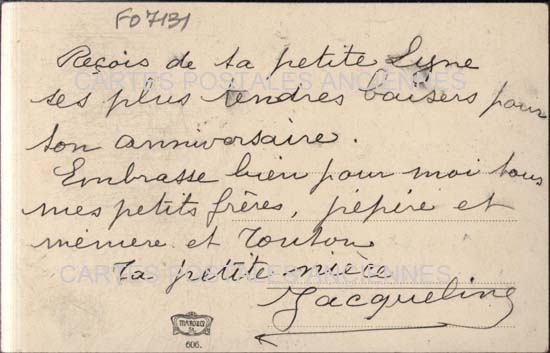 FO7131
Reçois de ta petite Lyne
ses plus tendres baisers pour
ton anniversaire.
Embrasse bien pour moi tous
mes petits frères, pépère et
mémère et Tonton
Ta petite nièce
Jacqueline
CARTES POSTALES ANCIENNES
CARTES POSTALES ANCIENNES
606.